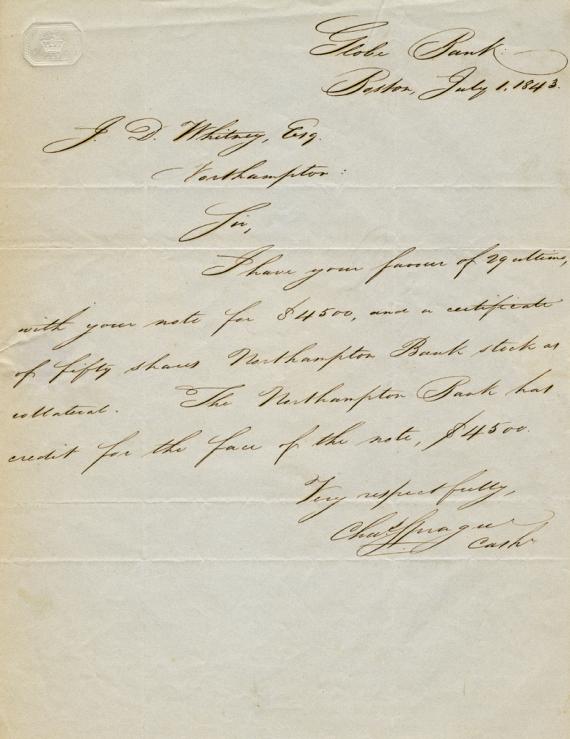 Globe Bank.
Boston, July 1, 1843.
J. D. Whitney, Esq.
Northampton:
Sir,
I have your favour of 29 ultimo,
with your note for $4500, and a certificate
of fifty shares Northampton Bank stock as
collateral. The Northampton Bank has
credit for the face of the note, $4500.
Very respectfully,
Chas Sprague
Cashr